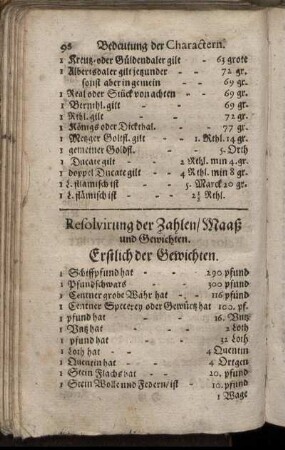 96 Bedeutung der Charactern.
1 Kreutz-oder Güldendaler gilt - 65 grote
1 Albertsdaler gilt jetzunder - - 72 gr.
sonst aber in gemein - - 69 gr.
1 Real oder Stück von achten - 69 gr.
1 Vermhl. gilt - - 69 gr.
1 Rthl. gilt - - 72 gr.
1 Königs oder Dickthal. - - 77 gr.
1 Metzger Goltfl. gilt - 1. Rthl. 14 gr.
1 gemeiner Goldfl. - - 5. Orth
1 Ducate gilt - 2 Rthl. min 4 gr.
1 doppel Ducate gilt - 4 Rthl. min 8 gr.
1 L. flämisch ist - 5. Marck 20 gr.
1 L. flämisch ist - - 2½ Rthl.
Resolvirung der Zahlen/Maaß
und Gewichten.
Erstlich der Gewichten.
1 Schiffpfund hat - - 290 pfund
1 Pfundschwars - - 300 pfund
1 Centner grobe Wahr hat - 116 pfund
1 Centner Specerey oder Gewürtz hat 100. pf.
1 pfund hat - - 16. Vntz
1 Vntz hat - - 2 Loth
1 pfund hat - - 32 Loth
1 Loth hat - - 4 Quentin
1 Quentin hat - - 4 Ortgen
1 Stein Flachs hat - - 20. pfund
1 Stein Wolle und Federn/ist - 10. pfund
1 Wage